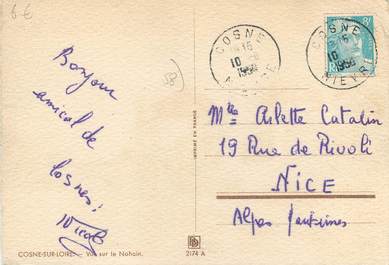 6 €
Bonjour
amical de
Cosnes !
Nicole
58
COSNE
NIEVRE
8F
COSNE
NIEVRE
IMPRIMÉ EN FRANCE
Mlle Arlette Catalin
19 Rue de Rivoli
NICE
Alpes Maritimes
COSNE-SUR-LOIRE. — Vue sur le Nohain.
2174 A